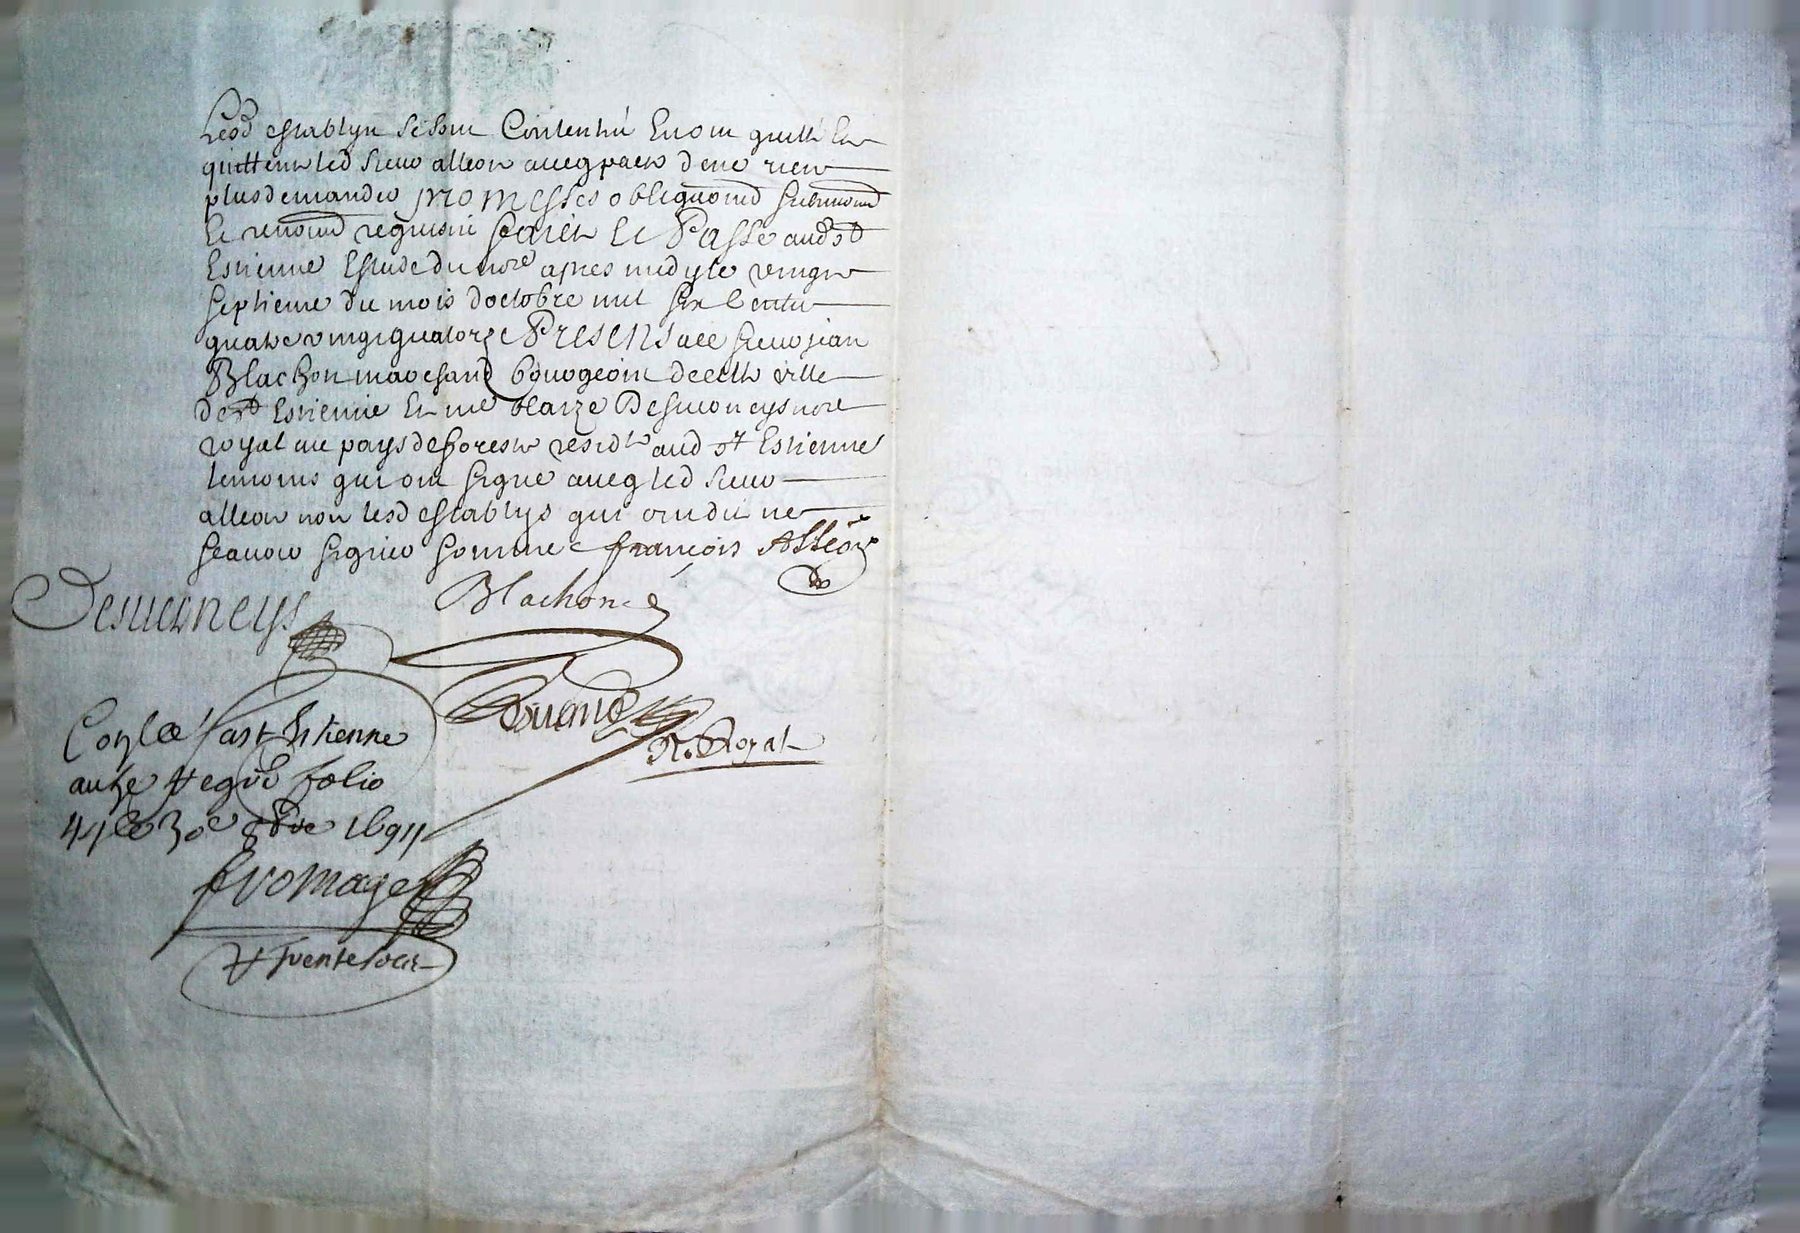 Lesd establys se sont Contentú En ont quitté Et
quittent led sieur alleon aveq pacte de ne rien
plus demander promesses obligaond submiond
Et renond requisni faict Et Passé aud st
Estienne Estude du nore apres midy le vingt
septieme du mois doctobre mil six Centz
quatre vingt quatorze Presens a ce sieur jean
Blachon marchand bourgeois de cette ville
de st Estienne Et me blaize Desverneys nore
royal au pays de forestz residt aud st Estienne
temoins qui ont signé aveq led sieur
alleon non lesd establys qui ont dit ne
scavoir signer sommé françois Alléon
Desverneys Blachon
N. Royal
Conlé a st Estienne
au 4e regre folio
41 le 30e 8bre 1694
fromage